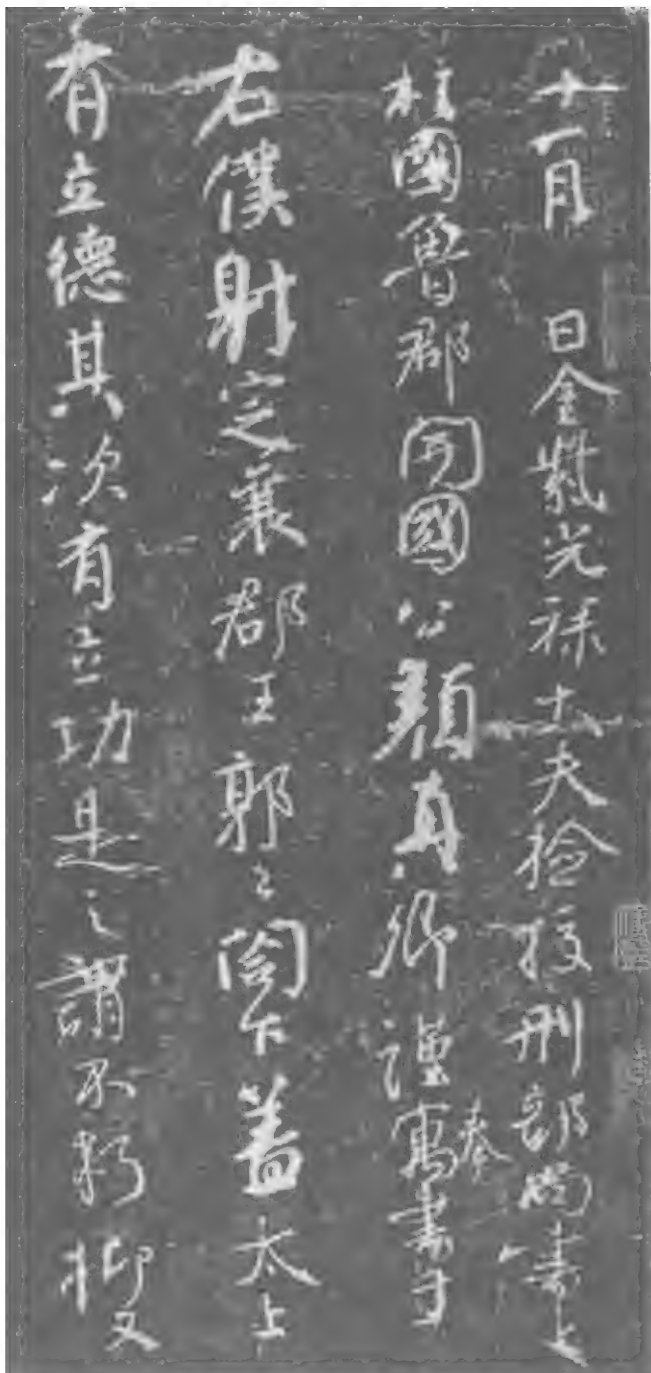 十一月 日金紫光禄大夫检校刑部尚書上
柱國魯郡開國公顏真卿謹奉寓書于
右僕射定襄郡王郭公閤下蓋太上
有立德其次有立功是之謂不朽抑又